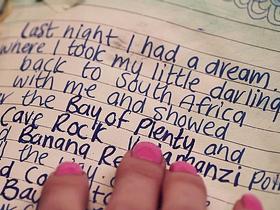 Last night I had a dream.
where I took my little darling
back to South Africa
with me and showed
the Bay of Plenty and
Cave Rock
Banana
the way
Bay